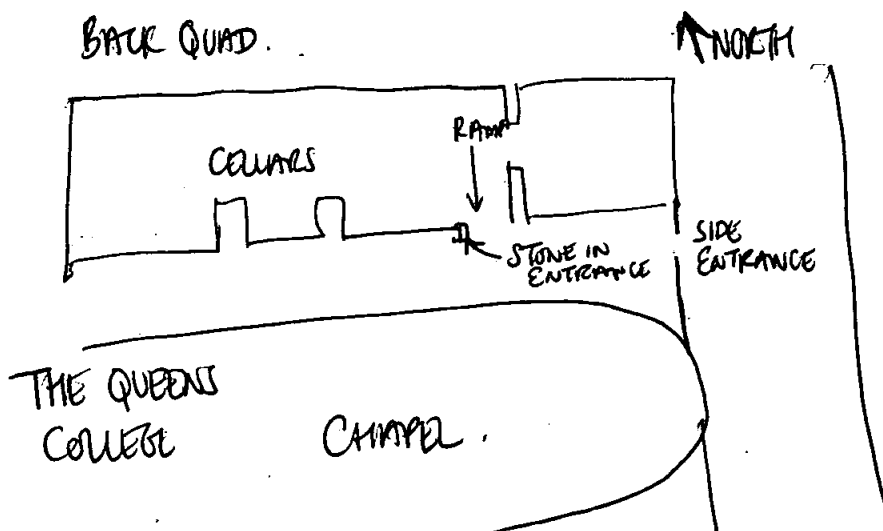 BACK QUAD.
NORTH
RAMP
CELLARS
STONE IN
ENTRANCE
SIDE
ENTRANCE
THE QUEENS
COLLEGE
CHAPEL.